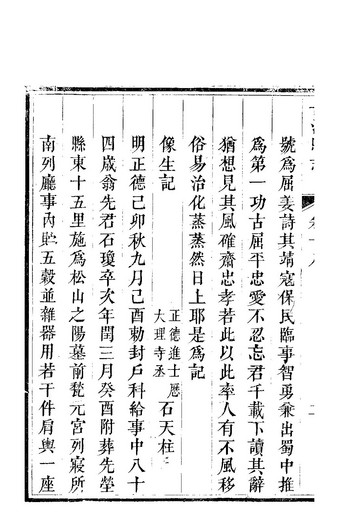 號爲屈姜詩其靖寇保民臨事智勇兼出蜀中推
爲第一功古屈平忠愛不忍忘君千載下讀其辭
猶想見其風確齋忠孝若此以此率人有不風移
俗易治化蒸蒸然日上耶是爲記
像生記
正德進士歷
大理寺丞
石天柱
明正德己卯秋九月己酉勅封戶科給事中八十
四歲翁先君石瓊卒次年閏三月癸酉附葬先塋
縣東十五里施爲松山之陽墓前甃元宮列寢所
南列廳事內貯五穀並雜器用若干件肩輿一座